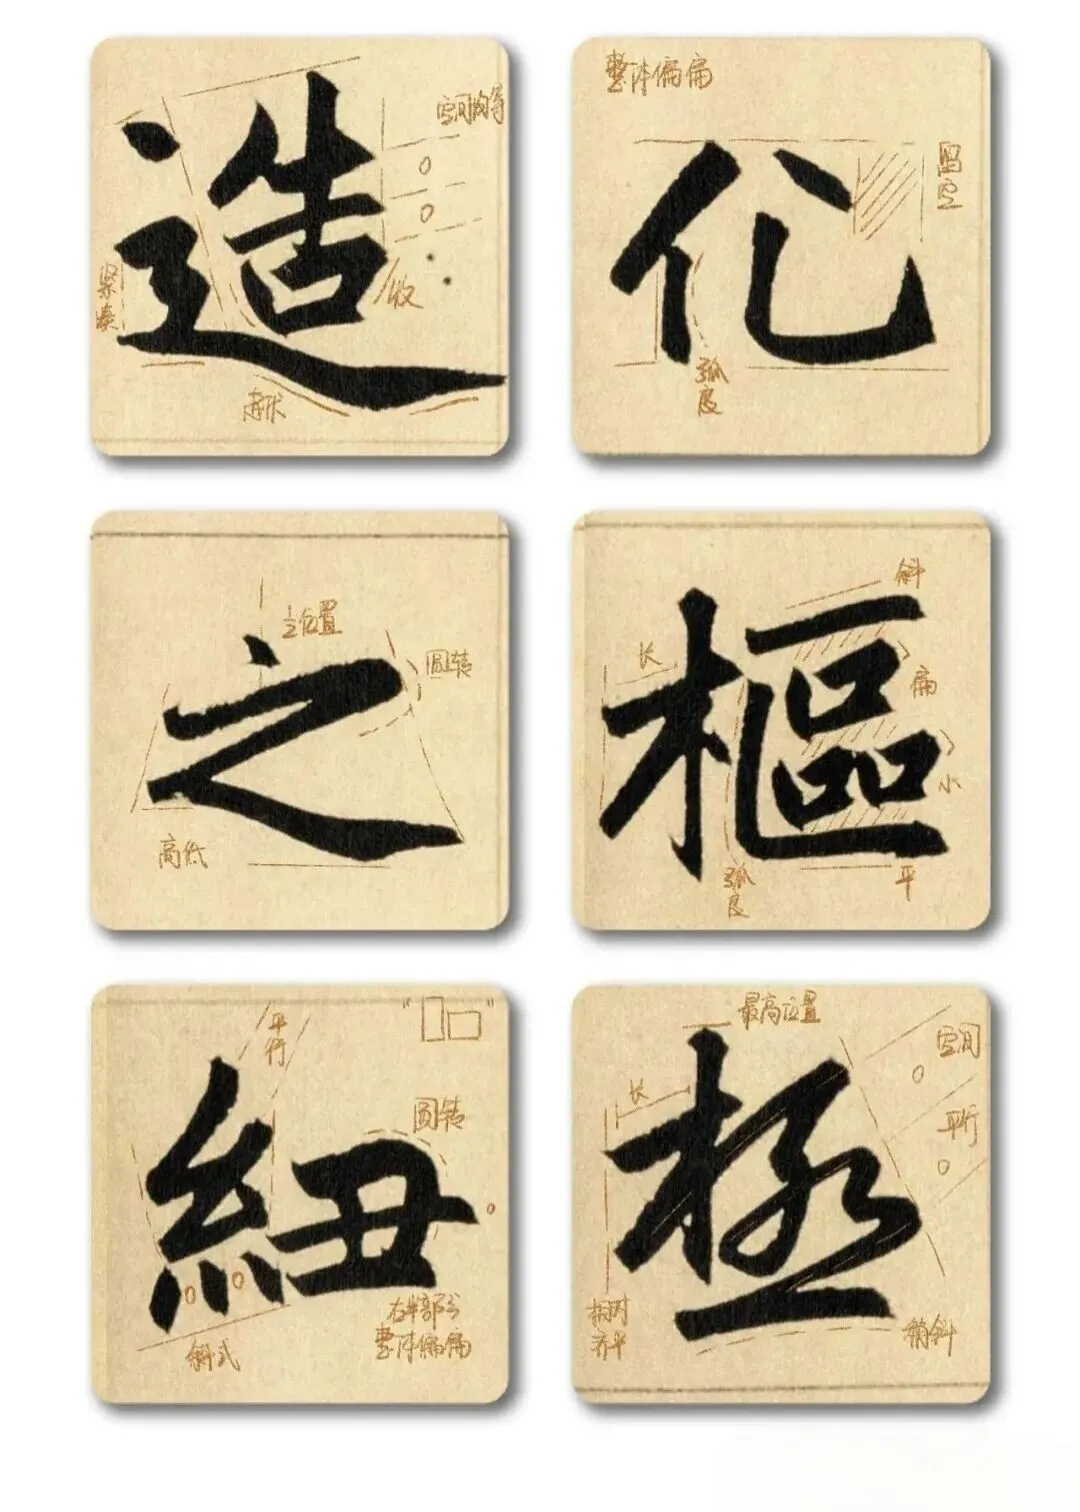 造
空间均等
紧凑
收
化
整体偏扁
留空
弧度
之
1/2位置
圆转
高低
樞
斜
长
扁
小
弧度
平
紐
平行
圆转
斜式
右半部分
整体偏扁
極
最高位置
长
空间
平行
相对
齐平
稍斜